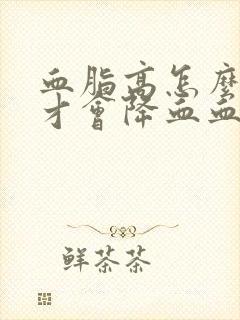 血脂高怎麼
才會降血血
鮮茶茶